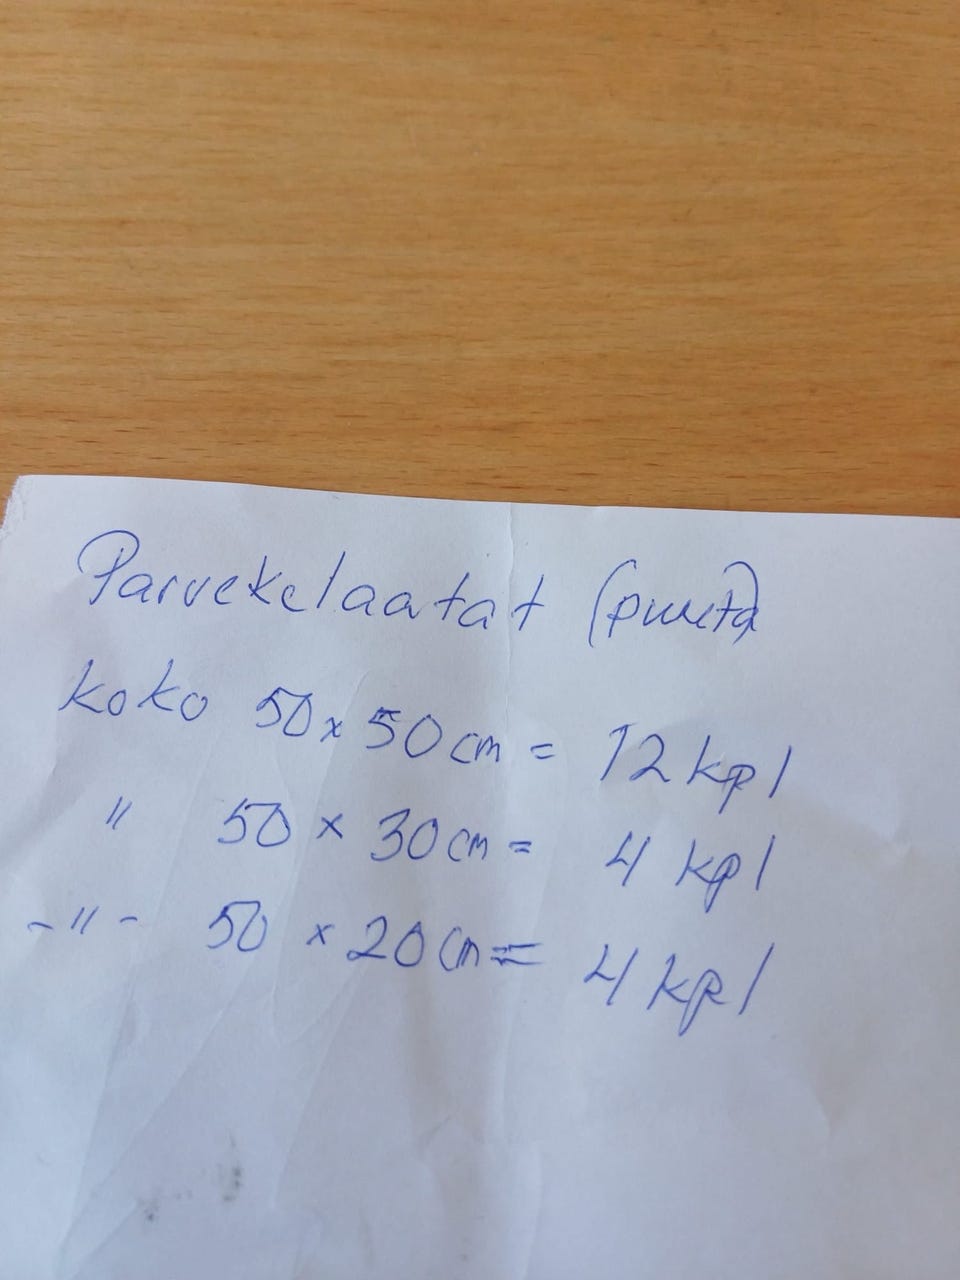 Parvekelaatat (puuta)
koko 50 x 50 cm = 12 kpl
" 50 x 30 cm = 4 kpl
-"- 50 x 20 cm = 4 kpl